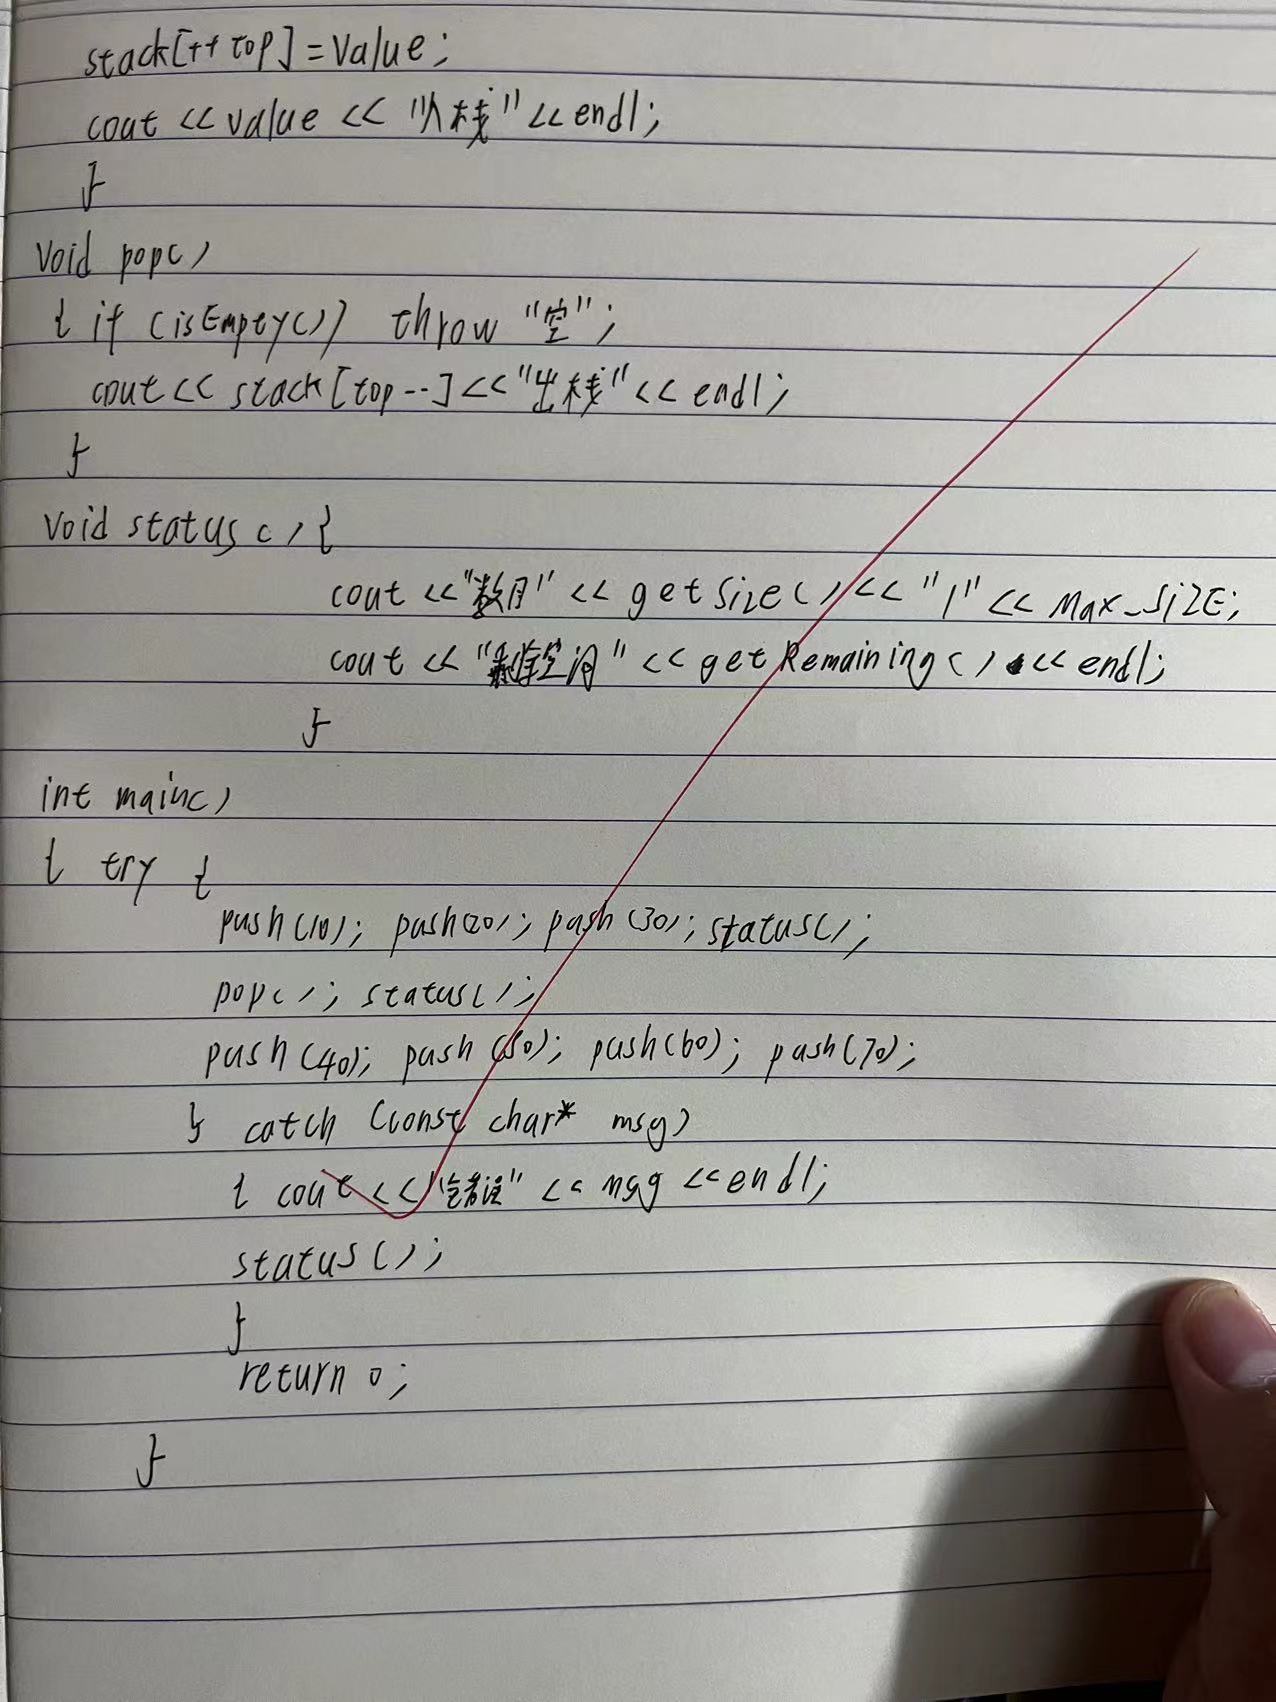 stack[++top]=value;
cout << value << "入栈" << endl;
}
void pop()
{ if (isEmpty()) throw "空";
cout << stack[top--] << "出栈" << endl;
}
void status(){
cout << "数目" << getSize() << "/" << MAX_SIZE;
cout << "剩余空间" << getRemaining() << endl;
}
int main()
{ try {
push(10); push(20); push(30); status();
pop(); status();
push(40); push(50); push(60); push(70);
} catch (const char* msg)
{ cout << "错误" << msg << endl;
status();
}
return 0;
}